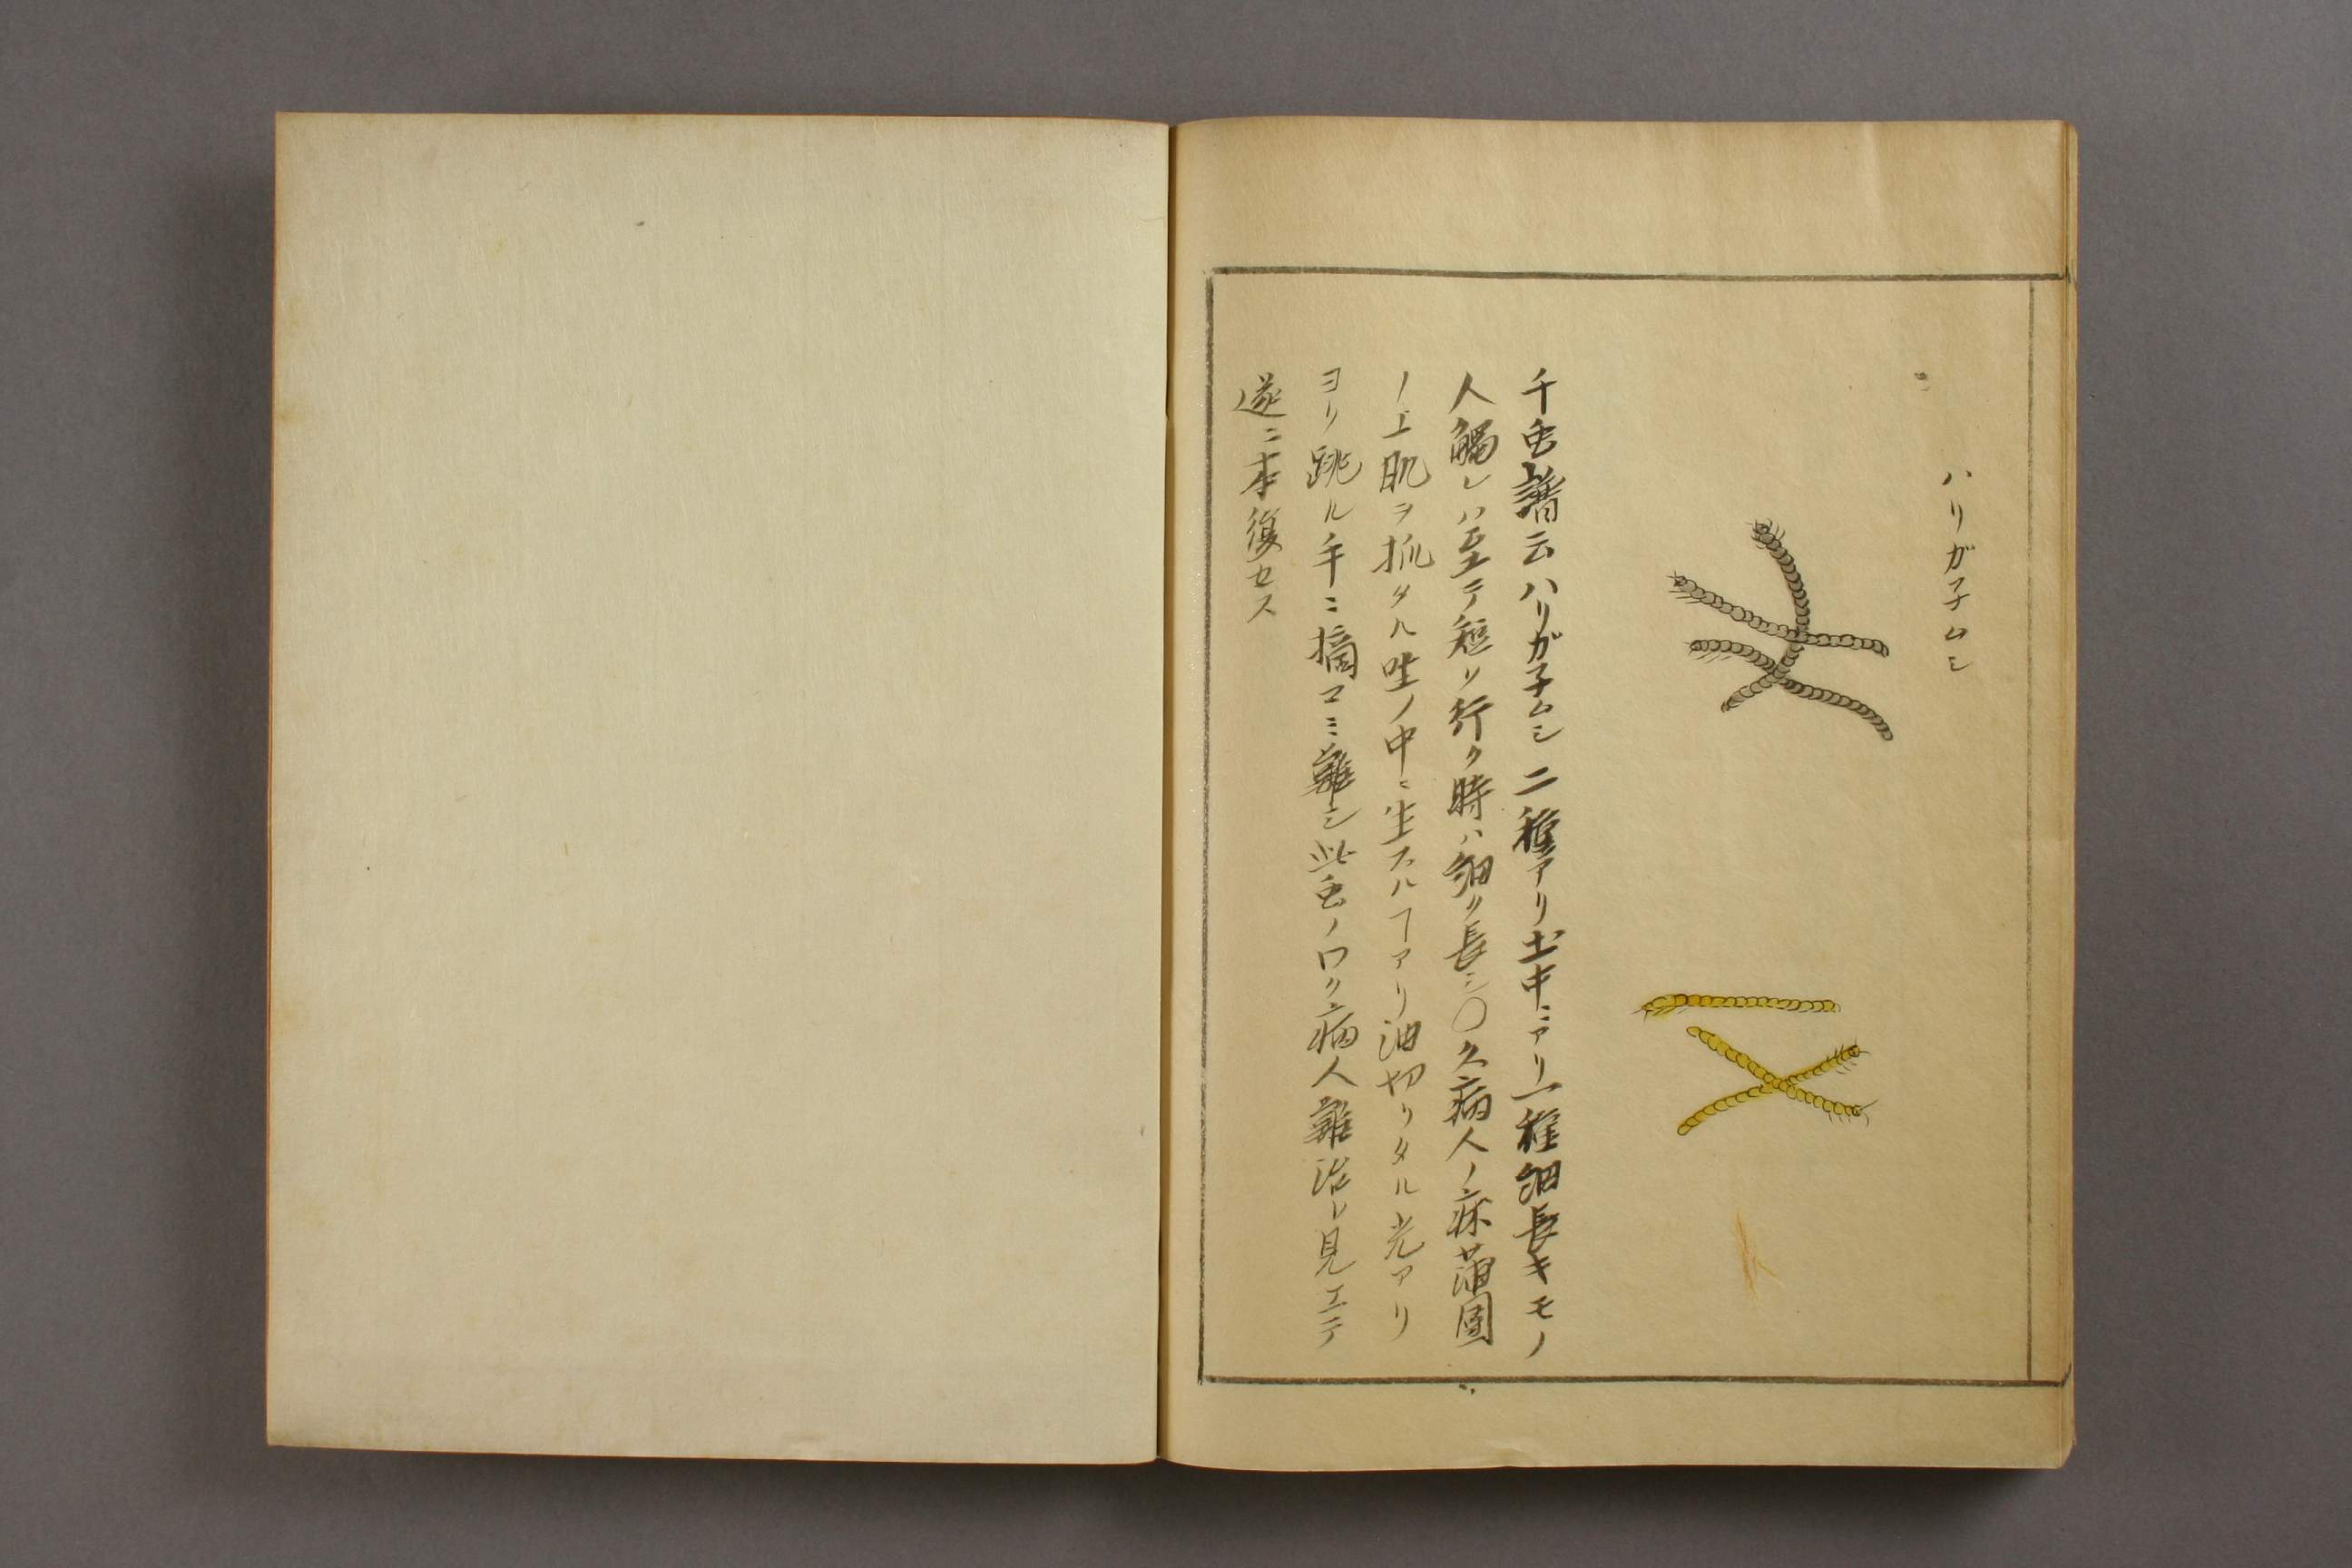 ハリガ子ムシ
千虫譜云ハリガ子ムシ二種アリ土中ニアリ一種細長キモノ
人觸レハ至テ短ク行ク時ハ細ク長シ〇久病人ノ床蒲團
ノ上肌ヲ抓タル ノ中ニ生スルヿアリ油切リタル光アリ
ヨリ跳ル手ニ摘マミ難シ此虫ノワク病人難治ト見エテ
遂ニ本復セス